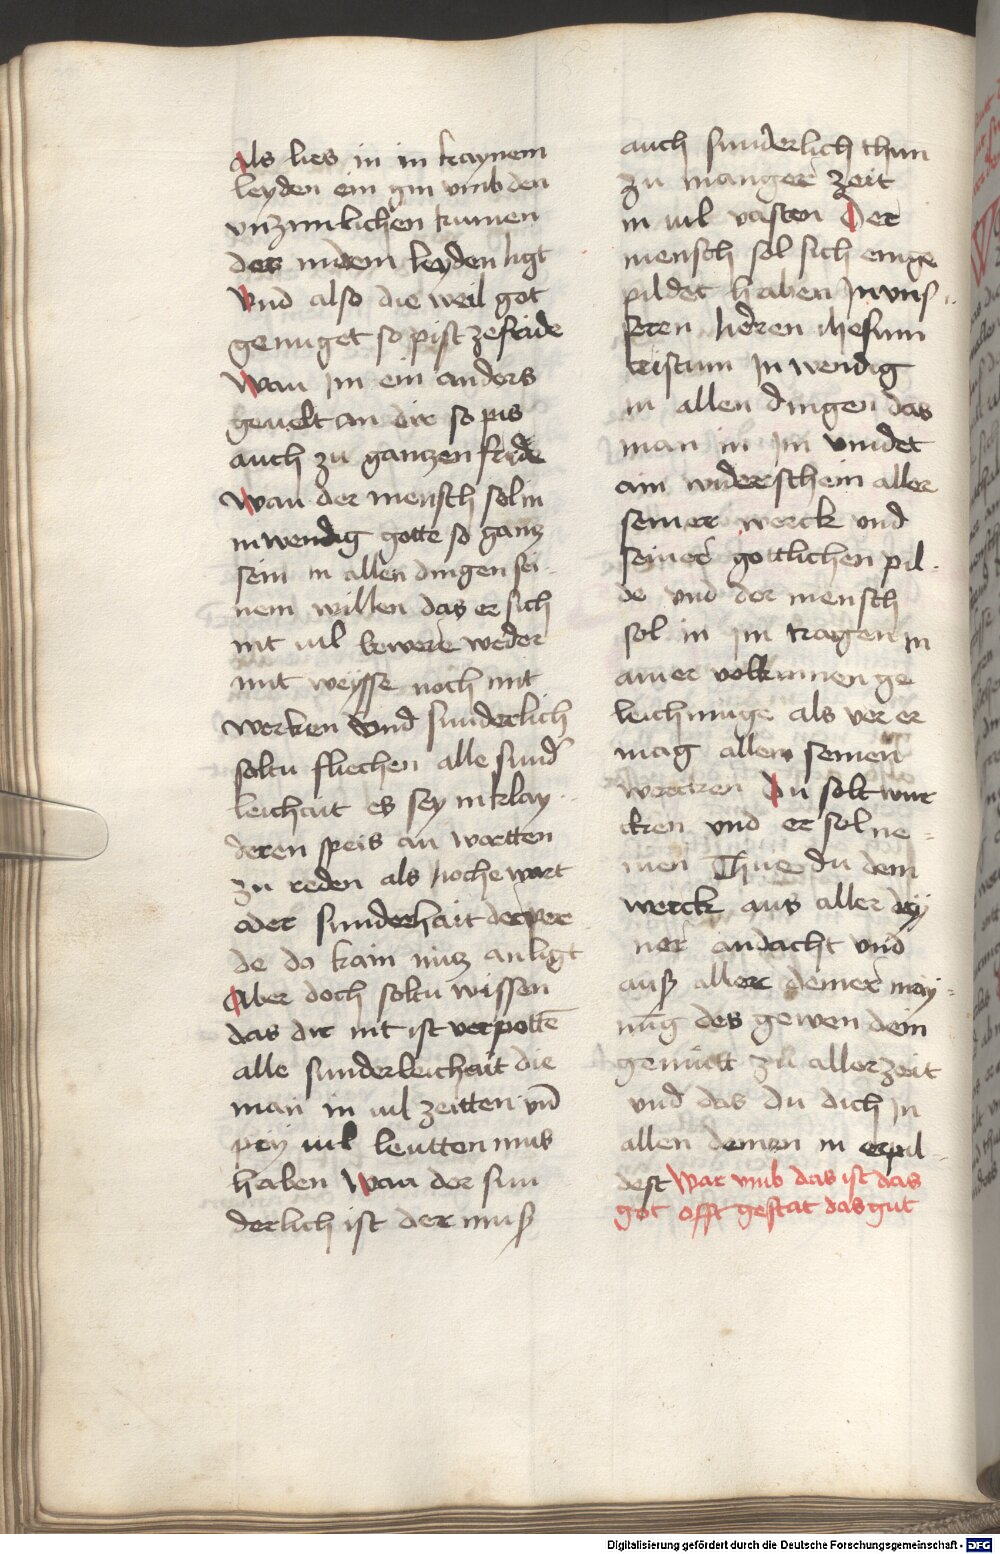 als lies in in kaynem
leyden ein gin vmb den
vnzimlichen kumen
des in dem leyden ligt
Vnd also die weil got
genuget so pist zefride
Wan Im ein anders
geuelt an dir so pis
auch zu gantzen fride
Wan der mensch sol in
inwendig gotte so gantz
sein in allen dingen sei
nem willen das er sich
nit uil bewere weder
mit weysse noch mit
werken Vnd sunderlich
soltu fliechen alle sund
leichait es sey in klay
deren speis an wortten
zu reden als hoche wort
oder sunderhait der per
de do kain nutz an ligt
Aber doch soltu wissen
das dir nit ist verpottē
alle sunderleichait die
man in uil zeitten vn̄
pey uil leutten mus
haben Wan der sun
derlich ist der muß
auch sunderlich thun
zu manger zeit
in uil vasten Der
mensch sol sich einge
pildet haben In vnß
seren herren ihesum
cristum Inwendig
in allen dingen das
man in Im vindet
ain widerschein aller
seiner werck vnd
seiner gottlichen pil
de vnd der mensch
sol in Im tragen in
ainer volkumen ge
leichnuge als ver er
mag allen seinen
wercken Du solt wur
cken vnd er sol ne
men Thue du dein
werck aus aller dey
ner andacht vnd
auß aller deiner may
nūg des gewen dein
gemutt zu aller zeit
vnd das du dich In
allen deinen in erpil
dest War vmb das ist das
got offt gestat das gut
Digitalisierung gefördert durch die Deutsche Forschungsgemeinschaft - DFG